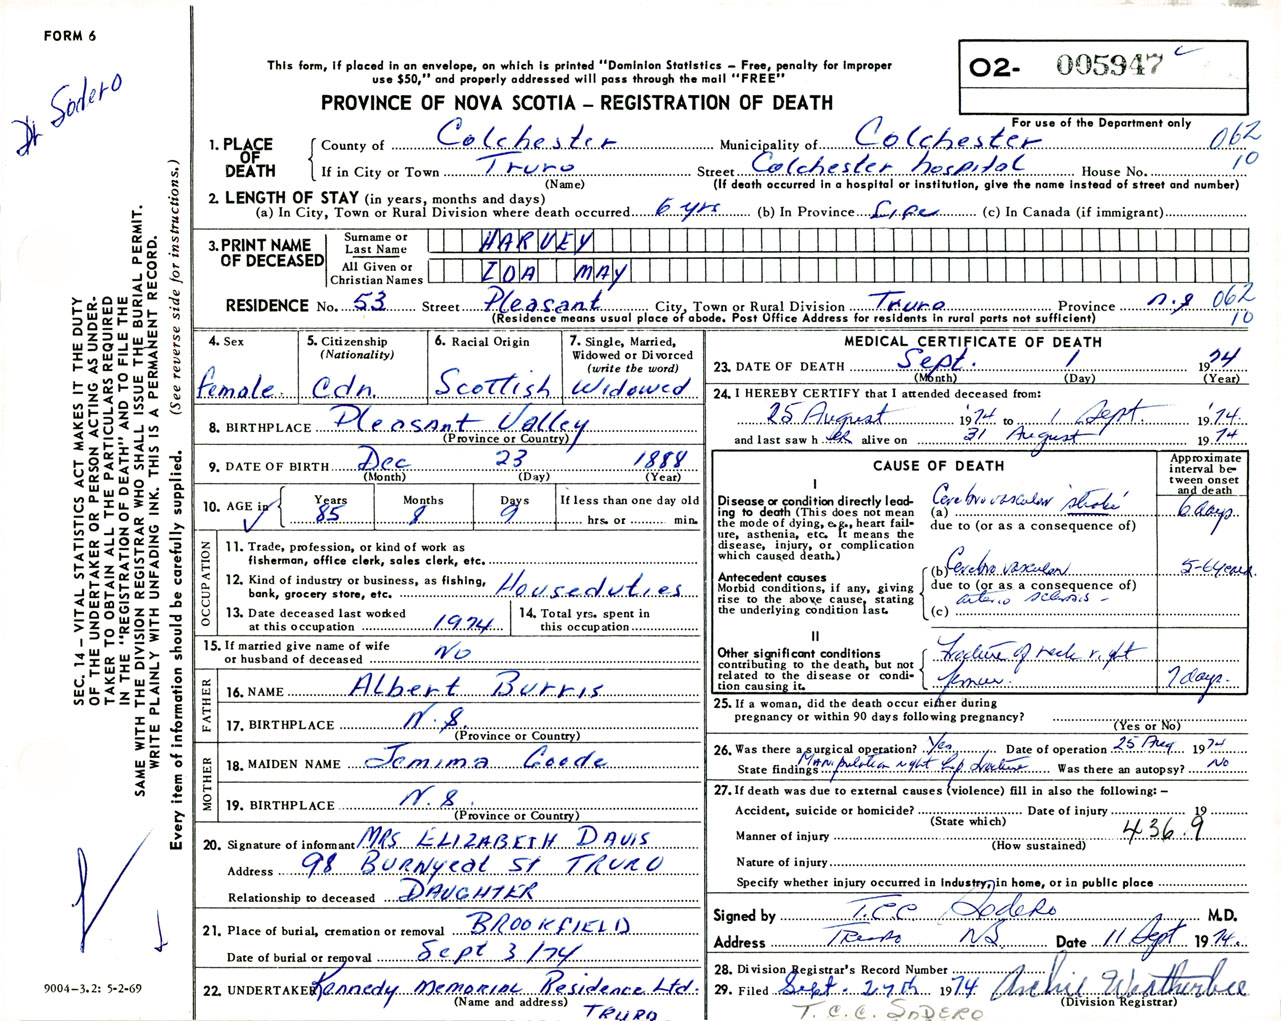 FORM 6
Dr Sodero
This form, if placed in an envelope, on which is printed "Dominion Statistics – Free, penalty for improper
use $50," and properly addressed will pass through the mail "FREE"
PROVINCE OF NOVA SCOTIA – REGISTRATION OF DEATH
O2- 005947 c
For use of the Department only
062
10
1. PLACE OF DEATH
County of Colchester Municipality of Colchester
If in City or Town Truro Street Colchester hospital House No.
(Name) (If death occurred in a hospital or institution, give the name instead of street and number)
2. LENGTH OF STAY (in years, months and days)
(a) In City, Town or Rural Division where death occurred 6 yrs (b) In Province Life (c) In Canada (if immigrant)
3. PRINT NAME OF DECEASED
Surname or Last Name HARVEY
All Given or Christian Names IDA MAY
RESIDENCE No. 53 Street Pleasant City, Town or Rural Division Truro Province n.s 062
10
(Residence means usual place of abode. Post Office Address for residents in rural parts not sufficient)
4. Sex
female.
5. Citizenship
(Nationality)
Cdn.
6. Racial Origin
Scottish
7. Single, Married,
Widowed or Divorced
(write the word)
Widowed
8. BIRTHPLACE Pleasant Valley
(Province or Country)
9. DATE OF BIRTH Dec 23 1888
(Month) (Day) (Year)
10. AGE in Years 85 Months 8 Days 9
If less than one day old
hrs. or min.
OCCUPATION
11. Trade, profession, or kind of work as
fisherman, office clerk, sales clerk, etc.
12. Kind of industry or business, as fishing,
bank, grocery store, etc. Houseduties
13. Date deceased last worked
at this occupation 1974
14. Total yrs. spent in
this occupation
15. If married give name of wife
or husband of deceased No
FATHER
16. NAME Albert Burris
17. BIRTHPLACE N.S.
(Province or Country)
MOTHER
18. MAIDEN NAME Jemima Goode
19. BIRTHPLACE N.S.
(Province or Country)
20. Signature of informant MRS ELIZABETH DAVIS
Address 98 BURNYEAT ST TRURO
Relationship to deceased DAUGHTER
21. Place of burial, cremation or removal BROOKFIELD
Date of burial or removal Sept 3/74
22. UNDERTAKER Kennedy Memorial Residence Ltd.
(Name and address) TRURO
MEDICAL CERTIFICATE OF DEATH
23. DATE OF DEATH Sept. 1 1974
(Month) (Day) (Year)
24. I HEREBY CERTIFY that I attended deceased from:
25 August 1974 to 1 Sept. 1974.
and last saw her alive on 31 August 1974
CAUSE OF DEATH
Approximate
interval be-
tween onset
and death
I
Disease or condition directly lead-
ing to death (This does not mean
the mode of dying, e.g., heart fail-
ure, asthenia, etc. It means the
disease, injury, or complication
which caused death.)
(a) Cerebrovascular 'stroke' 6 days
due to (or as a consequence of)
Antecedent causes
Morbid conditions, if any, giving
rise to the above cause, stating
the underlying condition last.
(b) Cerebro vascular 5-6 years
due to (or as a consequence of)
arterio sclerosis -
(c)
II
Other significant conditions
contributing to the death, but not
related to the disease or condi-
tion causing it.
Fracture of neck right
femur. 7 days.
25. If a woman, did the death occur either during
pregnancy or within 90 days following pregnancy?
(Yes or No)
26. Was there a surgical operation? Yes Date of operation 25 Aug 1974
State findings Manipulation right hip fracture Was there an autopsy? No
27. If death was due to external causes (violence) fill in also the following: –
Accident, suicide or homicide? Date of injury 19
(State which)
Manner of injury 436.9
(How sustained)
Nature of injury
Specify whether injury occurred in industry, in home, or in public place
Signed by T.C.C Sodero M.D.
Address Truro NS Date 11 Sept 1974.
28. Division Registrar's Record Number
29. Filed Sept. 27th 1974 Archie Weatherbee
(Division Registrar)
T. C. C. SODERO
SEC. 14 – VITAL STATISTICS ACT MAKES IT THE DUTY
OF THE UNDERTAKER OR PERSON ACTING AS UNDER-
TAKER TO OBTAIN ALL THE PARTICULARS REQUIRED
IN THE "REGISTRATION OF DEATH" AND TO FILE THE
SAME WITH THE DIVISION REGISTRAR WHO SHALL ISSUE THE BURIAL PERMIT.
WRITE PLAINLY WITH UNFADING INK. THIS IS A PERMANENT RECORD.
Every item of information should be carefully supplied. (See reverse side for instructions.)
9004-3.2: 5-2-69